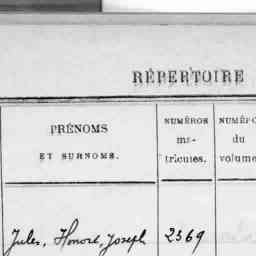 RÉPERTOIRE
PRÉNOMS
ET SURNOMS.
NUMÉROS
ma-
tricules.
NUMÉRO
du
volume
Jules, Honoré, Joseph 2369